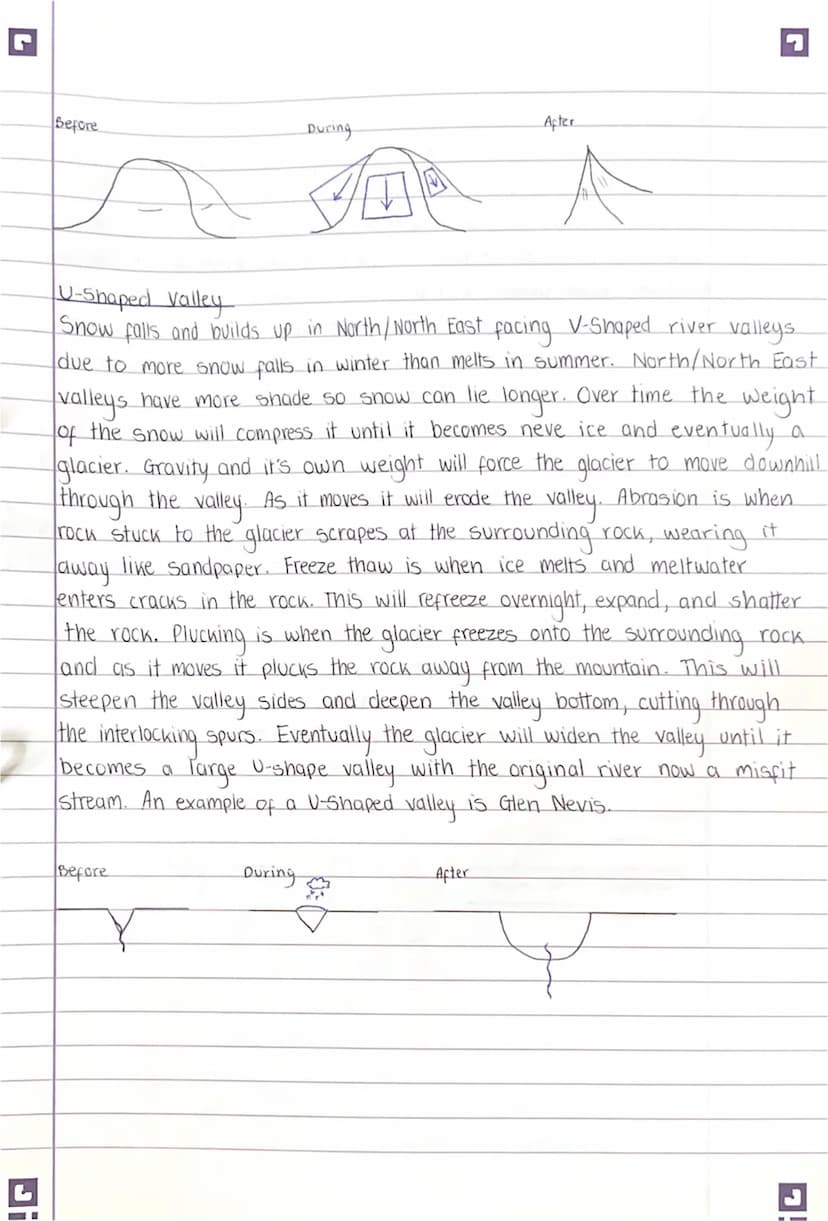 Before During After
U-Shaped Valley
Snow falls and builds up in North/North East facing V-Shaped river valleys
due to more snow falls in winter than melts in summer. North/North East
valleys have more shade so snow can lie longer. Over time the weight
of the snow will compress it until it becomes neve ice and eventually a
glacier. Gravity and it's own weight will force the glacier to move downhill
through the valley. As it moves it will erode the valley. Abrasion is when
rock stuck to the glacier scrapes at the surrounding rock, wearing it
away like sandpaper. Freeze thaw is when ice melts and meltwater
enters cracks in the rock. This will refreeze overnight, expand, and shatter
the rock. Plucking is when the glacier freezes onto the surrounding rock
and as it moves it plucks the rock away from the mountain. This will
steepen the valley sides and deepen the valley bottom, cutting through
the interlocking spurs. Eventually the glacier will widen the valley until it
becomes a large U-shape valley with the original river now a misfit
stream. An example of a U-Shaped valley is Glen Nevis.
Before During After